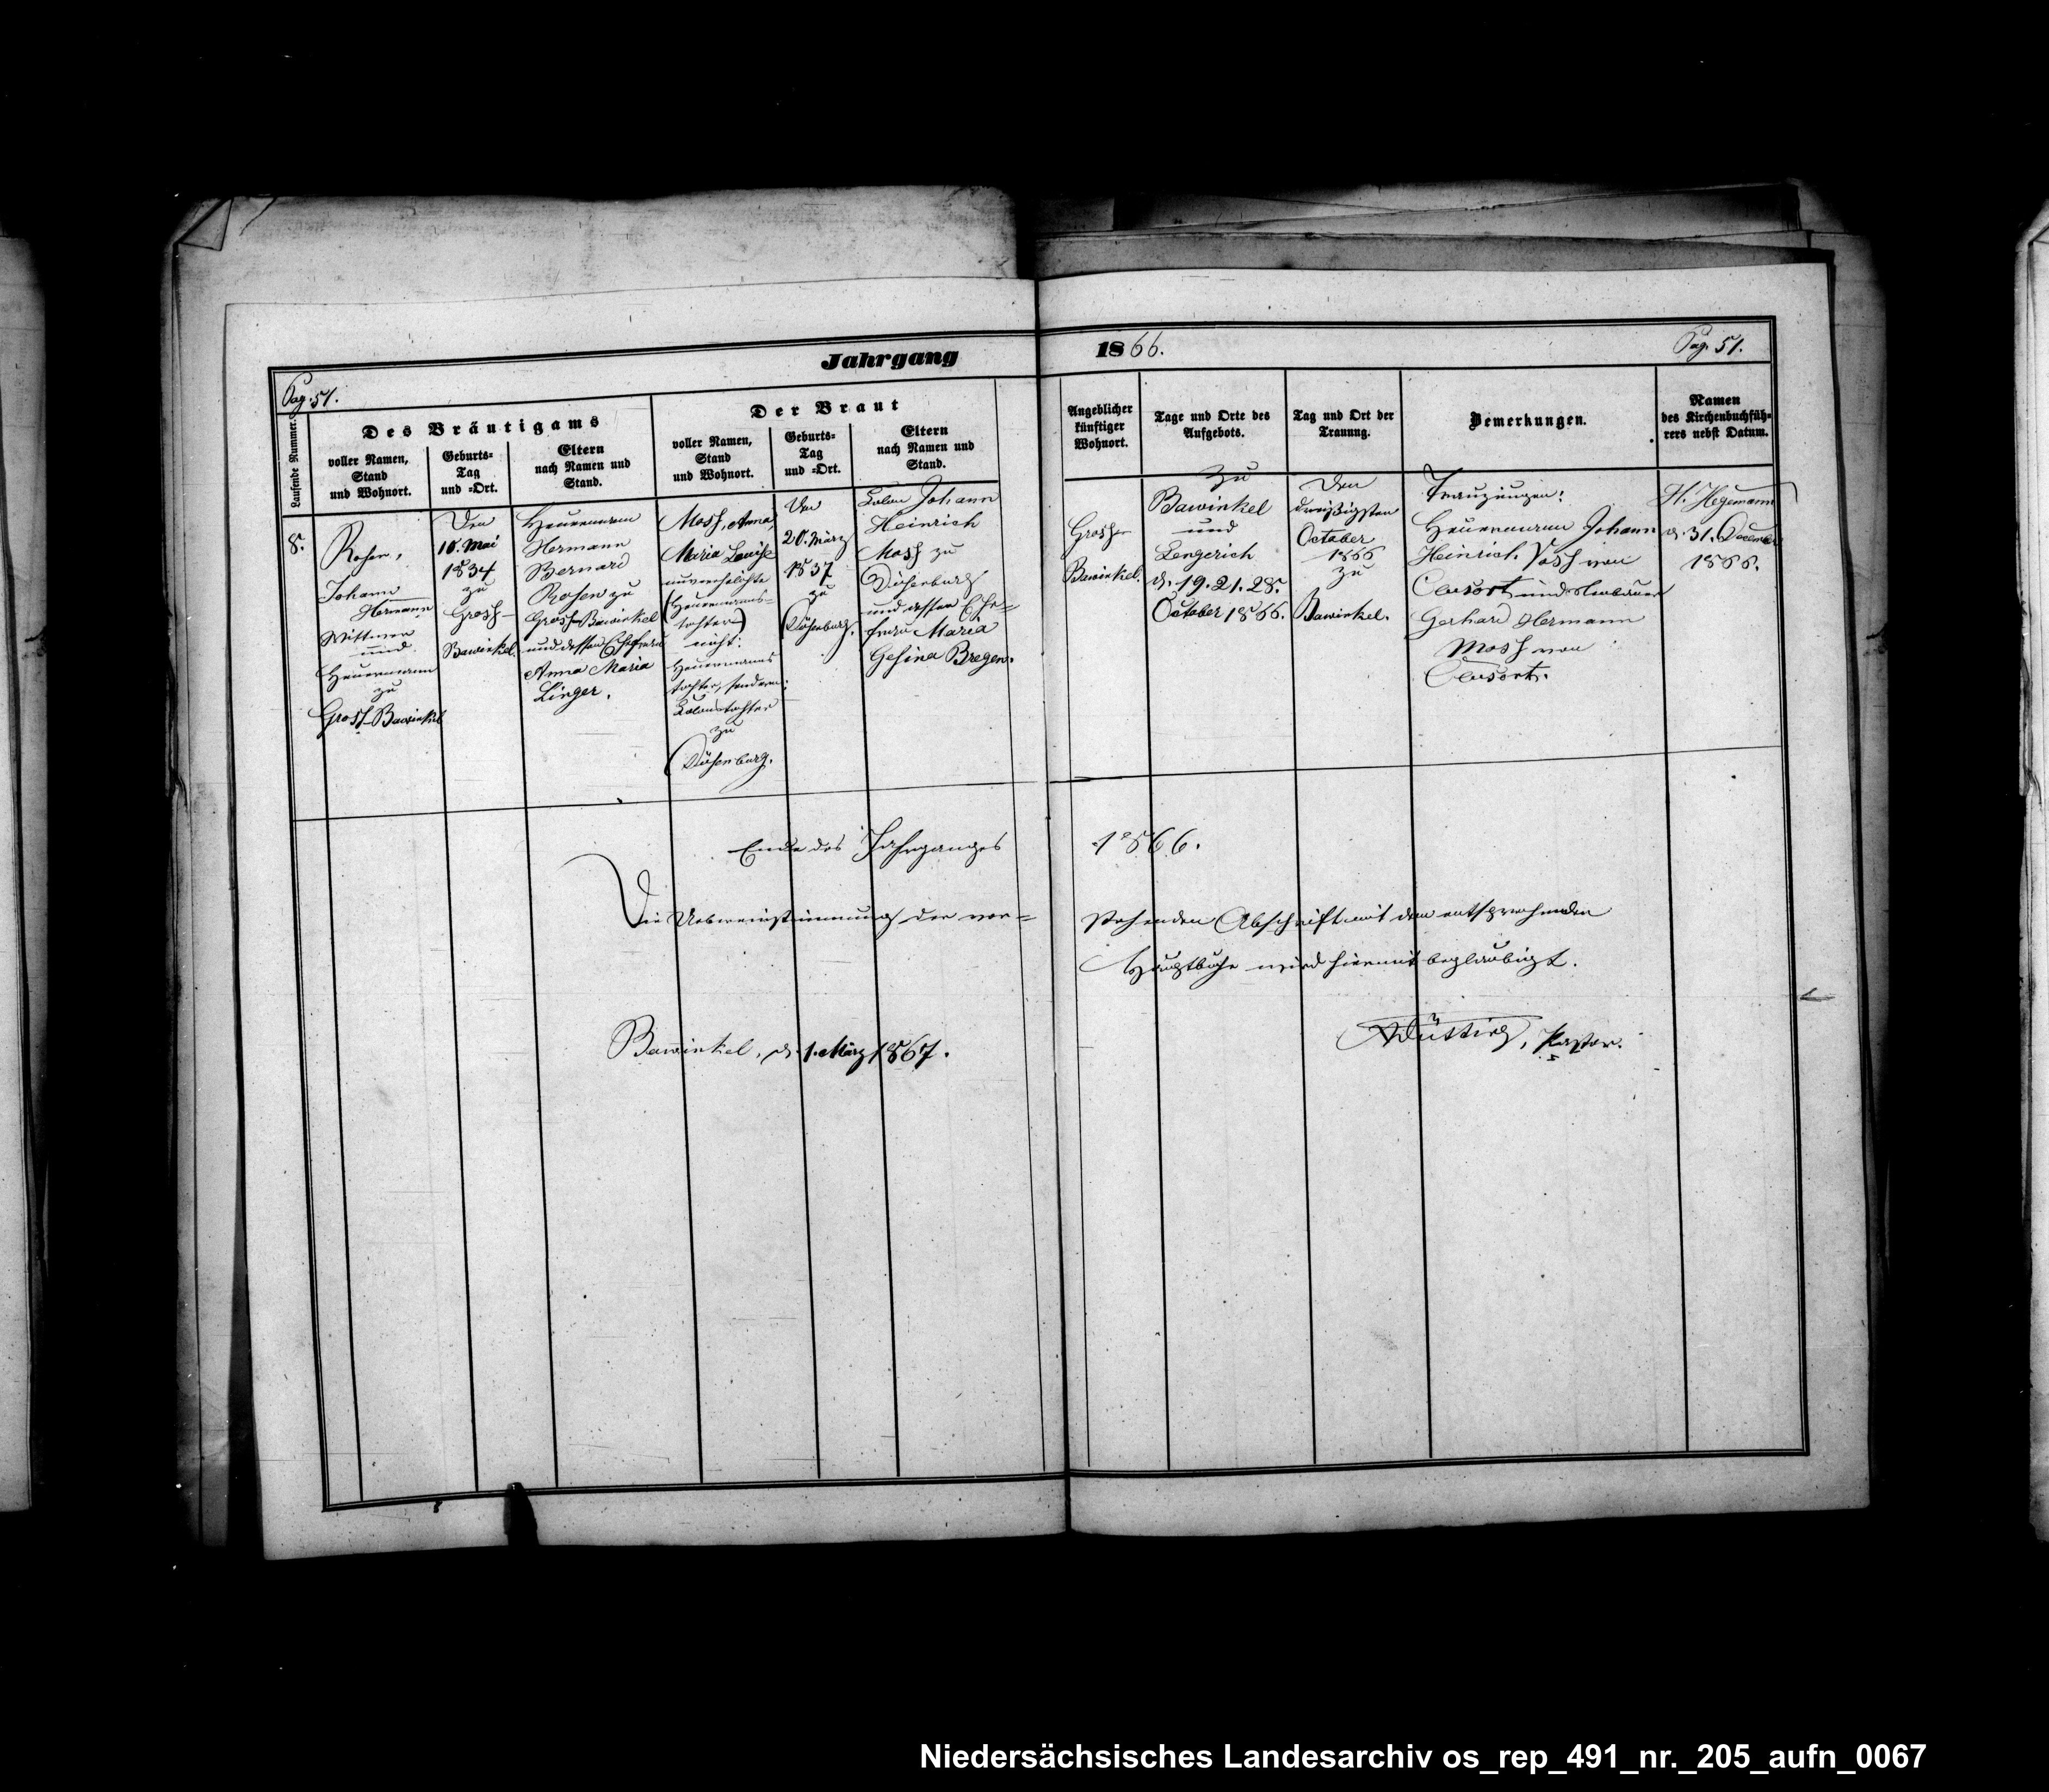 Jahrgang 1866.
Pag. 51.
Pag. 51.
Laufende Nummer.
Des Bräutigams
voller Namen,
Stand
und Wohnort.
Geburts-
Tag
und =Ort.
Eltern
nach Namen und
Stand.
Der Braut
voller Namen,
Stand
und Wohnort.
Geburts-
Tag
und =Ort.
Eltern
nach Namen und
Stand.
Angeblicher
künftiger
Wohnort.
Tage und Orte des
Aufgebots.
Tag und Ort der
Trauung.
Bemerkungen.
Namen
des Kirchenbuchfüh-
rers nebst Datum.
8.
Rosen,
Johann
Hermann
Wittwer
und
Heuermann
zu
Gross-Bawinkel
Den
10. Mai
1834
zu
Gross-
Bawinkel.
Heuermann
Hermann
Bernard
Rosen zu
Gross-Bawinkel
und dessen Ehefrau
Anna Maria
Linger.
Moss, Anna
Maria Louise
unverehelichte
(Heuermanns-
tochter)
nicht:
Heuermanns
tochter, sondern:
Colonstochter
zu
Düsenburg.
Den
20. März
1837
zu
Düsenburg.
Colon Johann
Heinrich
Moss zu
Düsenburg
und dessen Ehe=
frau Maria
Gesina Bregen.
Gross-
Bawinkel.
Zu
Bawinkel
und
Lengerich
d. 19. 21. 28.
October 1866.
Den
dreißigsten
October
1866
zu
Bawinkel.
Trauzeugen:
Heuermann Johann
Heinrich Voss von
Clusort und Neubauer
Gerhard Hermann
Moss von
Clusort.
H. Hegemann
d. 31. December
1866.
Ende des Jahrganges 1866.
Die Uebereinstimmung der vor= stehenden Abschrift mit dem entsprechenden
Hauptbuche wird hiermit beglaubigt.
Bawinkel, d. 1. März 1867.
Dütting, Pastor.
Niedersächsisches Landesarchiv os_rep_491_nr._205_aufn_0067